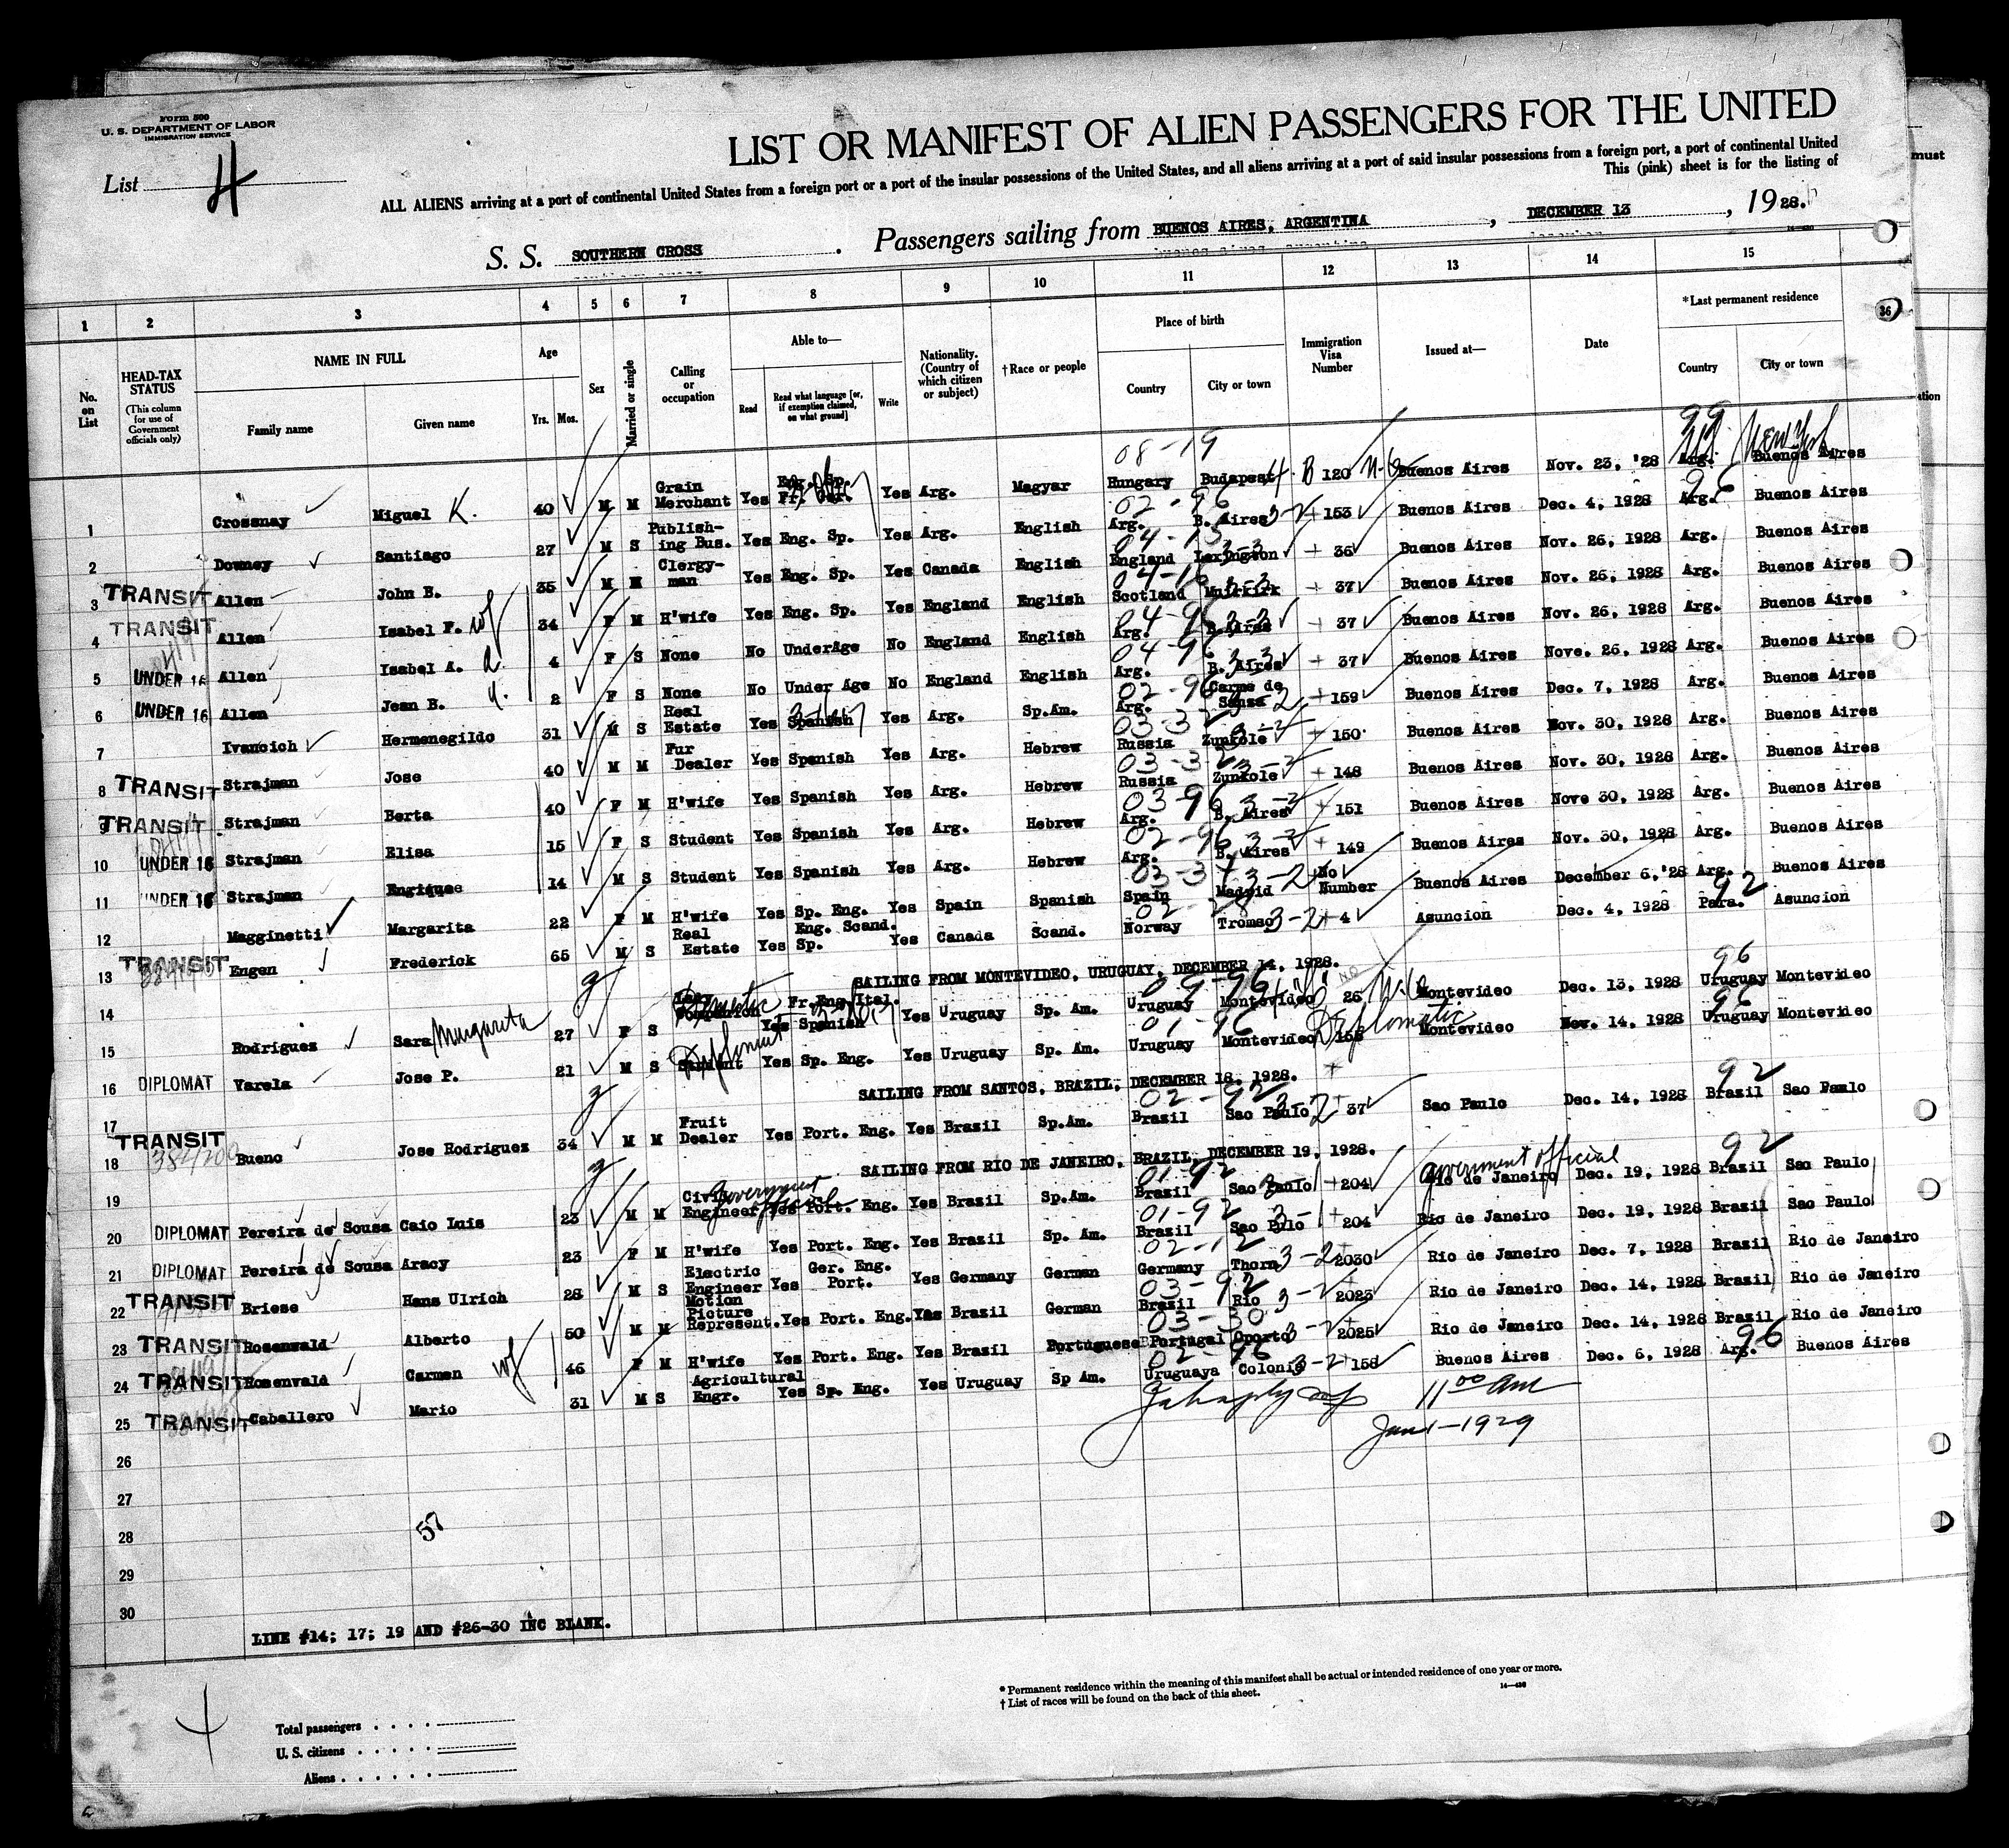 Form 500
U. S. DEPARTMENT OF LABOR
IMMIGRATION SERVICE
List 4
LIST OR MANIFEST OF ALIEN PASSENGERS FOR THE UNITED
ALL ALIENS arriving at a port of continental United States from a foreign port or a port of the insular possessions of the United States, and all aliens arriving at a port of said insular possessions from a foreign port, a port of continental United
This (pink) sheet is for the listing of
S. S. SOUTHERN CROSS. Passengers sailing from BUENOS AIRES, ARGENTINA, DECEMBER 13, 1928.
1 2 3 4 5 6 7 8 9 10 11 12 13 14 15
No. on List
HEAD-TAX STATUS (This column for use of Government officials only)
NAME IN FULL Family name Given name
Age Yrs. Mos.
Sex
Married or single
Calling or occupation
Able to— Read Read what language [or, if exemption claimed, on what ground] Write
Nationality. (Country of which citizen or subject)
†Race or people
Place of birth Country City or town
Immigration Visa Number
Issued at—
Date
*Last permanent residence Country City or town
36
1 Crossnay Miguel K. 40 M M Grain Merchant Yes Eng. Sp. Fr. Yes Arg. Magyar Hungary Budapest B 120 Buenos Aires Nov. 23, '28 Arg. Buenos Aires New York
2 Downey Santiago 27 M S Publishing Bus. Yes Eng. Sp. Yes Arg. English Arg. B. Aires 153 Buenos Aires Dec. 4, 1928 Arg. Buenos Aires
3 TRANSIT Allen John B. 35 M M Clergy-man Yes Eng. Sp. Yes Canada English England Lexington 36 Buenos Aires Nov. 26, 1928 Arg. Buenos Aires
4 TRANSIT Allen Isabel F. wf 34 F M H'wife Yes Eng. Sp. Yes England English Scotland Muirkirk 37 Buenos Aires Nov. 26, 1928 Arg. Buenos Aires
5 UNDER 16 Allen Isabel A. 4 F S None No UnderAge No England English Arg. B. Aires 37 Buenos Aires Nov. 26, 1928 Arg. Buenos Aires
6 UNDER 16 Allen Jean B. 2 F S None No Under Age No England English Arg. B. Aires 37 Buenos Aires Nove. 26, 1928 Arg. Buenos Aires
7 Ivancich Hermenegildo 31 M S Real Estate Yes Spanish Yes Arg. Sp.Am. Arg. 159 Buenos Aires Dec. 7, 1928 Arg. Buenos Aires
8 TRANSIT Strajman Jose 40 M M Fur Dealer Yes Spanish Yes Arg. Hebrew Russia Zunkole 150 Buenos Aires Nov. 30, 1928 Arg. Buenos Aires
9 TRANSIT Strajman Berta 40 F M H'wife Yes Spanish Yes Arg. Hebrew Russia Zunkole 148 Buenos Aires Nov. 30, 1928 Arg. Buenos Aires
10 UNDER 16 Strajman Elisa 15 F S Student Yes Spanish Yes Arg. Hebrew Arg. B. Aires 151 Buenos Aires Nove 30, 1928 Arg. Buenos Aires
11 UNDER 16 Strajman Enrique 14 M S Student Yes Spanish Yes Arg. Hebrew Arg. B. Aires 149 Buenos Aires Nov. 30, 1928 Arg. Buenos Aires
12 Magginetti Margarita 22 F M H'wife Yes Sp. Eng. Yes Spain Spanish Spain Madrid No Number Buenos Aires December 6,'28 Arg. Buenos Aires
13 TRANSIT Engen Frederick 65 M S Real Estate Yes Eng. Scand. Sp. Yes Canada Scand. Norway Tromso 4 Asuncion Dec. 4, 1928 Para. Asuncion
14 SAILING FROM MONTEVIDEO, URUGUAY, DECEMBER 14, 1928.
15 Rodriguez Sara Margarita 27 F S Domestic Yes Fr.Eng.Ital. Spanish Yes Uruguay Sp. Am. Uruguay Montevideo 26 Montevideo Dec. 13, 1928 Uruguay Montevideo
16 DIPLOMAT Varela Jose P. 21 M S Student Diplomat Yes Sp. Eng. Yes Uruguay Sp. Am. Uruguay Montevideo Diplomatic Montevideo Nov. 14, 1928 Uruguay Montevideo
17 SAILING FROM SANTOS, BRAZIL, DECEMBER 18, 1928.
18 TRANSIT Bueno Jose Rodriguez 34 M M Fruit Dealer Yes Port. Eng. Yes Brazil Sp.Am. Brazil Sao Paulo 37 Sao Paulo Dec. 14, 1928 Brazil Sao Paulo
19 SAILING FROM RIO DE JANEIRO, BRAZIL, DECEMBER 19, 1928.
20 DIPLOMAT Pereira de Sousa Caio Luis 23 M M Civil Engineer Government official Yes Port. Eng. Yes Brazil Sp.Am. Brazil Sao Paulo 204 Government official Rio de Janeiro Dec. 19, 1928 Brazil Sao Paulo
21 DIPLOMAT Pereira de Sousa Aracy 23 F M H'wife Yes Port. Eng. Yes Brazil Sp. Am. Brazil Sao Pulo 204 Rio de Janeiro Dec. 19, 1928 Brazil Sao Paulo
22 TRANSIT Briese Hans Ulrich 28 M S Electric Engineer Yes Ger. Eng. Port. Yes Germany German Germany Thorn 2030 Rio de Janeiro Dec. 7, 1928 Brazil Rio de Janeiro
23 TRANSIT Rosenvald Alberto 50 M M Motion Picture Represent. Yes Port. Eng. Yes Brazil German Brazil Rio 2023 Rio de Janeiro Dec. 14, 1928 Brazil Rio de Janeiro
24 TRANSIT Rosenvald Carmen wf 46 F M H'wife Yes Port. Eng. Yes Brazil Portuguese Portugal Oporto 2025 Rio de Janeiro Dec. 14, 1928 Brazil Rio de Janeiro
25 TRANSIT Caballero Mario 31 M S Agricultural Engr. Yes Sp. Eng. Yes Uruguay Sp Am. Uruguaya Colonia 158 Buenos Aires Dec. 6, 1928 Arg. Buenos Aires
11 00 AM
Jan 1-1929
26
27
28
29
30
57
LINE #14; 17; 19 AND #26-30 INC BLANK.
* Permanent residence within the meaning of this manifest shall be actual or intended residence of one year or more.
† List of races will be found on the back of this sheet.
Total passengers
U. S. citizens
Aliens